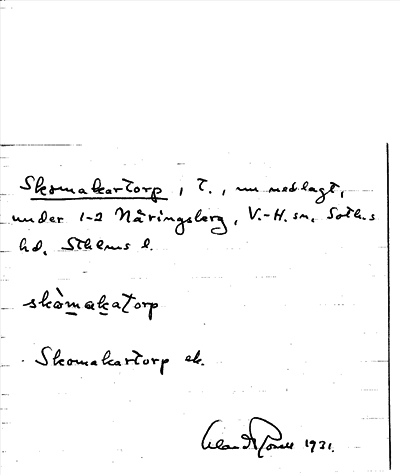 Skomakartorp, t., nu nedlagt,
under 1-2 Näringsberg, V.-H. sn, Soth.s
hd, Sthlms l.
skòmakatorp
Skomakartorp ek.
1931.